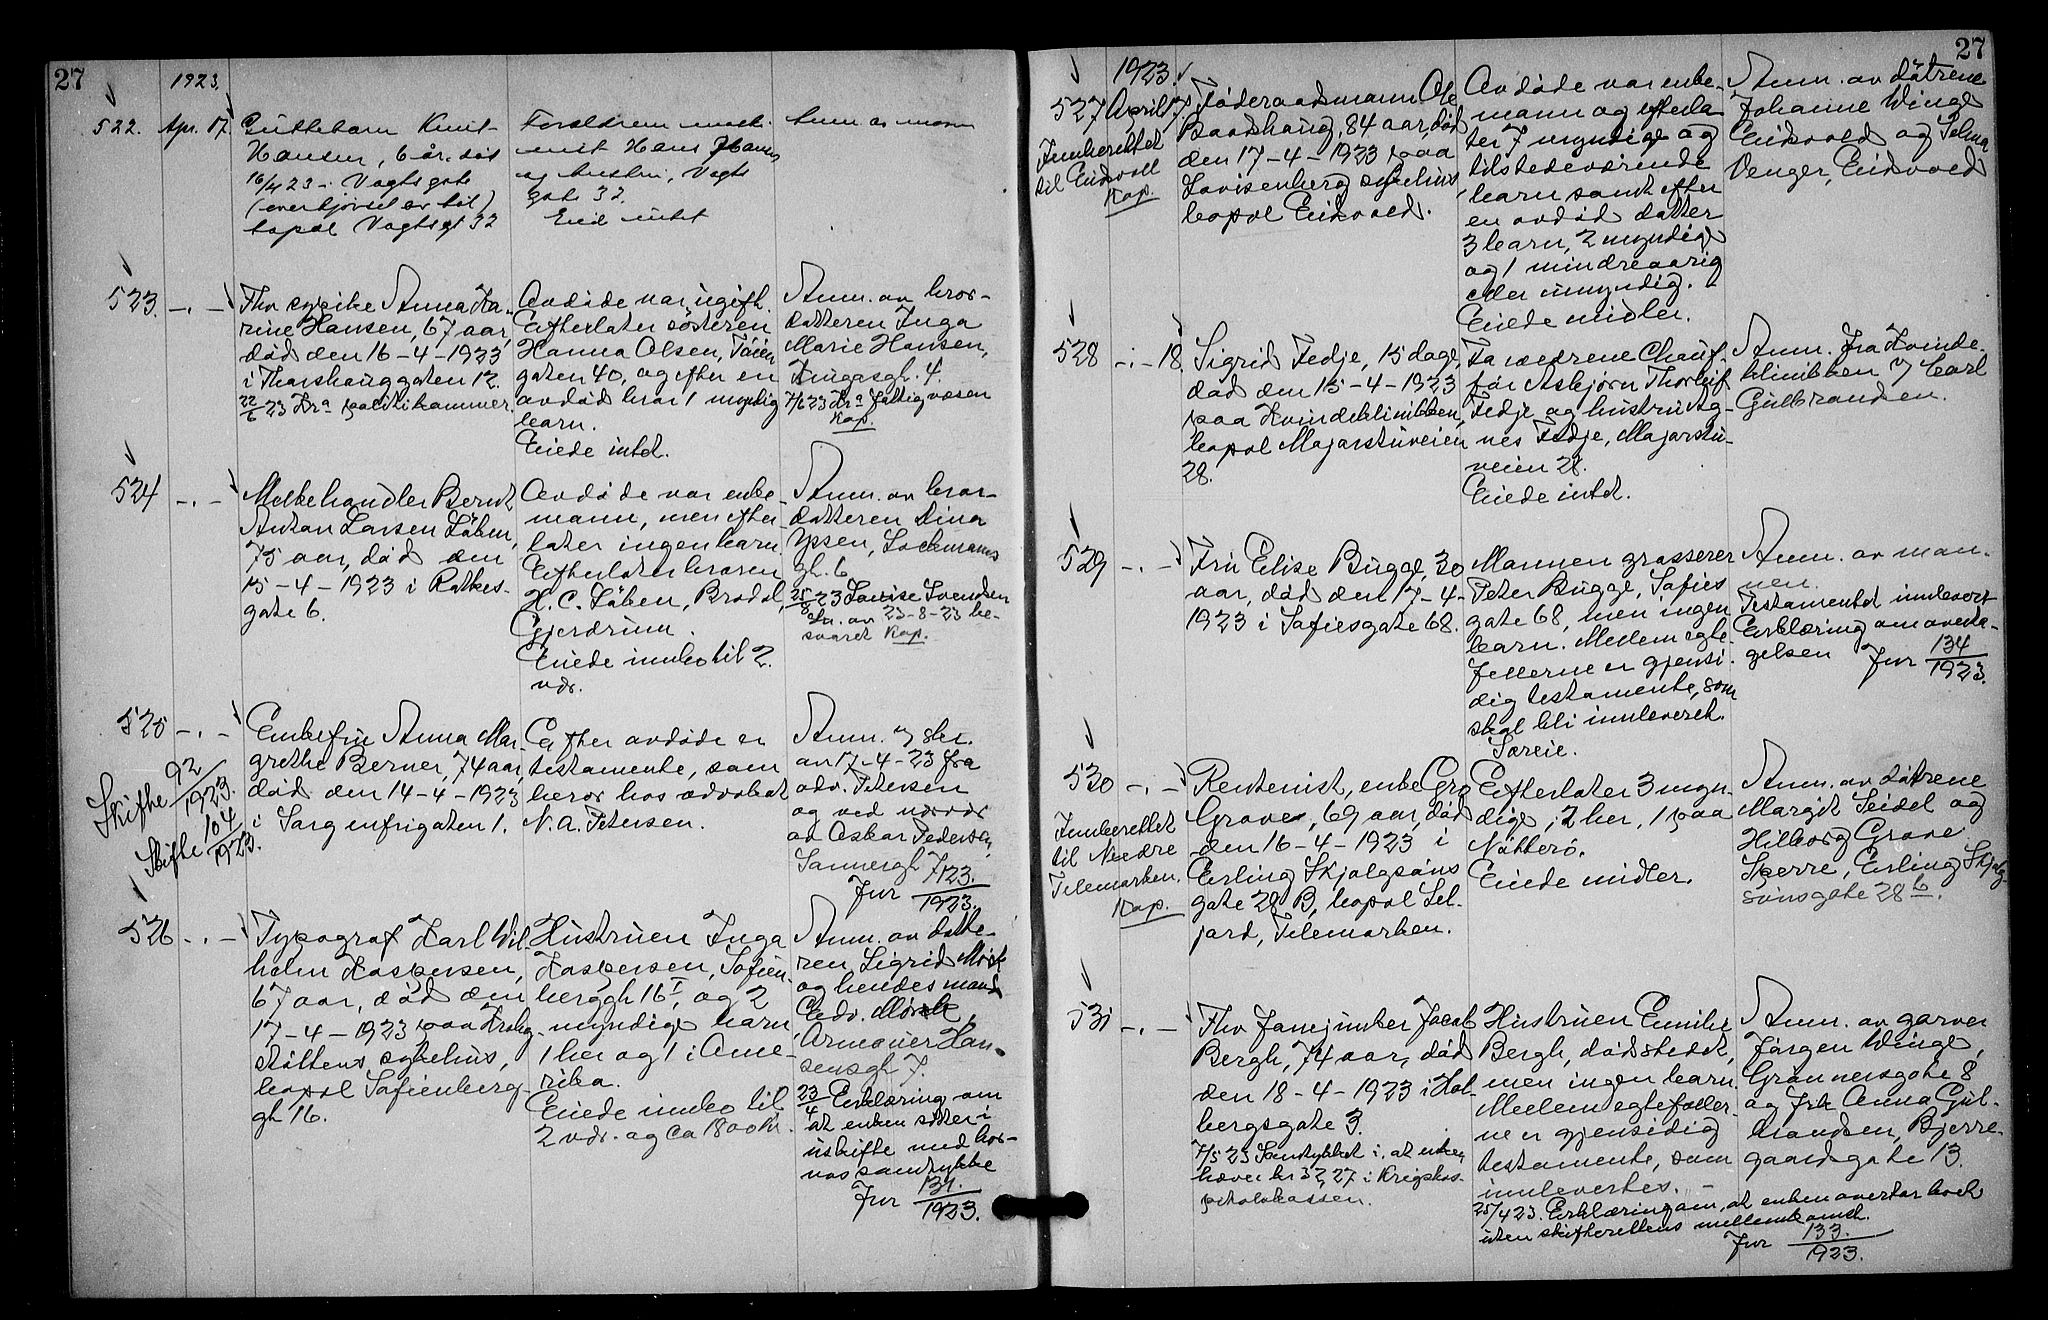 27
1923.
522. Apr. 17.
Guttebarn Knut
Hansen, 6 år. død
16/4 23 i Vogtsgate
(overkjørsel av bil)
bopæl Vogtsgt 32
Forældrene
Hans Hansen
og hustru, Vogts
gate 32.
Eied intet
523. -.-
Fhv sypike Anna Ka-
rine Hansen, 67 aar,
død den 16-4-1923
i Thorshauggaten 12.
22/6 23 Kra politikammer.
Avdøde var ugift.
Efterlater søsteren
Hanna Olsen, Tøien-
gaten 40, og efter en
avdød bror 1 myndig
barn.
Eiede intet.
Anm. av bror-
datteren Inga
Marie Hansen,
4.
7/6 23 Kra fattigvæsen
Kop.
524 -.-
Melkehandler Bernt
Anton Larsen Løben,
75 aar, død den
15-4-1923 i Ratkes-
gate 6.
Avdøde var enke-
mann, men efter-
later ingen barn.
Efterlater broren
H. C. Løben, Brodal,
Gjerdrum.
Eiede innbo til 2.
vær.
Anm. av bror-
datteren Dina
Ypsen, Lochmanns
gt. 6
25/8 23 Louise Svendsen
av 23-8-23 be-
svaret Kop.
525 -.-
Skifte 92/1923.
Skifte 104/1923.
Enkefru Anna Mar-
grethe Berner, 74 aar,
død den 14-4-1923
i Sorgenfrigaten 1.
Efter avdøde er
testamente, som
beror hos advokat
N. A. Petersen.
Anm. 7 skr.
av 17-4-23 fra
adv. Petersen
og ved
av Oskar Pedersen,
Sannergt 7
Jnr 123./1923.
526 -.-
Typograf Karl Wil-
helm Kaspersen,
67 aar, død den
17-4-1923 paa Krohg-
støttens sykehus,
bopæl Sofienberg-
gt 16.
Hustruen Inga
Kaspersen, Sofien-
berggt 16 I, og 2
myndige barn,
1 her og 1 i Ame-
rika.
Eiede innbo til
2 vær. og ca 1800 kr.
Anm. av datte-
ren, Sigrid Mørk
og hendes mand
Edv. Mørk,
Armauer Han-
sensgt 7.
23/4 Erklæring om
at enken sitter i
uskifte med bar-
nas samtykke
Jnr 131./1923.
27
1923.
527 April 17.
Innberettet
til Eidsvoll
Kop.
Føderaadsmann Ole
Baardshaug, 84 aar, død
den 17-4-1923 paa
Lovisenberg sykehus
bopæl Eidsvold.
Avdøde var enke-
mann og efterla-
ter 7 myndige og
tilstedeværende
barn samt efter
en avdød datter
3 barn, 2 myndige
og 1 mindreaarig
eller umyndig.
Eiede midler.
Anm. av døtrene
Johanne Winge
Eidsvold og Selma
Venger, Eidsvold
528 -.- 18.
Sigrid Fedje, 15 dage,
død den 15-4-1923
paa Kvindeklinikken,
bopæl Majorstuveien
28.
Forældrene Chauf-
før Asbjørn Thorleif
Fedje og hustru Ag-
nes Fedje, Majorstu-
veien 28.
Eiede intet.
Anm. fra Kvinde-
klinikken 7 Carl
Gulbrandsen.
529 -.-
Fru Elise Bugge, 30
aar, død den 17-4-
1923 i Sofiesgate 68.
Mannen grosserer
Peter Bugge, Sofies
gate 68, men ingen
barn. Mellem egte-
fellerne er gjensi-
dig testamente, som
skal bli innleveret.
Særeie.
Anm. av man-
nen.
Testamentet innlevert
Erklæring om overta-
gelsen Jnr 134/1923.
530 -.-
Innberettet
til Nedre
Telemarken.
Kop.
Rentenist, enke Gro
Grave, 69 aar, død
den 16-4-1923 i
Erling Skjalgsøns
gate 28 B, bopæl Sel-
jord, Telemarken.
Efterlater 3 myn-
dige, 2 her, 1 paa
Nøtterø.
Eiede midler.
Anm. av døtrene
Margit Seidel og
Hilborg Grave
Sperre, Erling Skjalg-
sønsgate 28 b.
531 -.-
Fhv Janejunker Jacob
Bergh, 74 aar, død
den 18-4-1923 i Hol-
bergsgate 3.
7/5 23 Samtykket i, at enken
hæver kr 37,27 i Krigshos-
pitalskassen.
Hustruen Emilie
Bergh, dødstedet,
men ingen barn.
Mellem egtefeller-
ne er gjensidig
testamente, som
innlevertes. -
25/4 23. Erklæring om, at enken overtar boet
uten skifterettens mellemkomst.
Jnr 133./1923.
Anm. av garver
Jørgen Winge,
Grønnersgate 8
og frk Anna Gul-
brandsen, Bjerre-
gaardsgate 13.